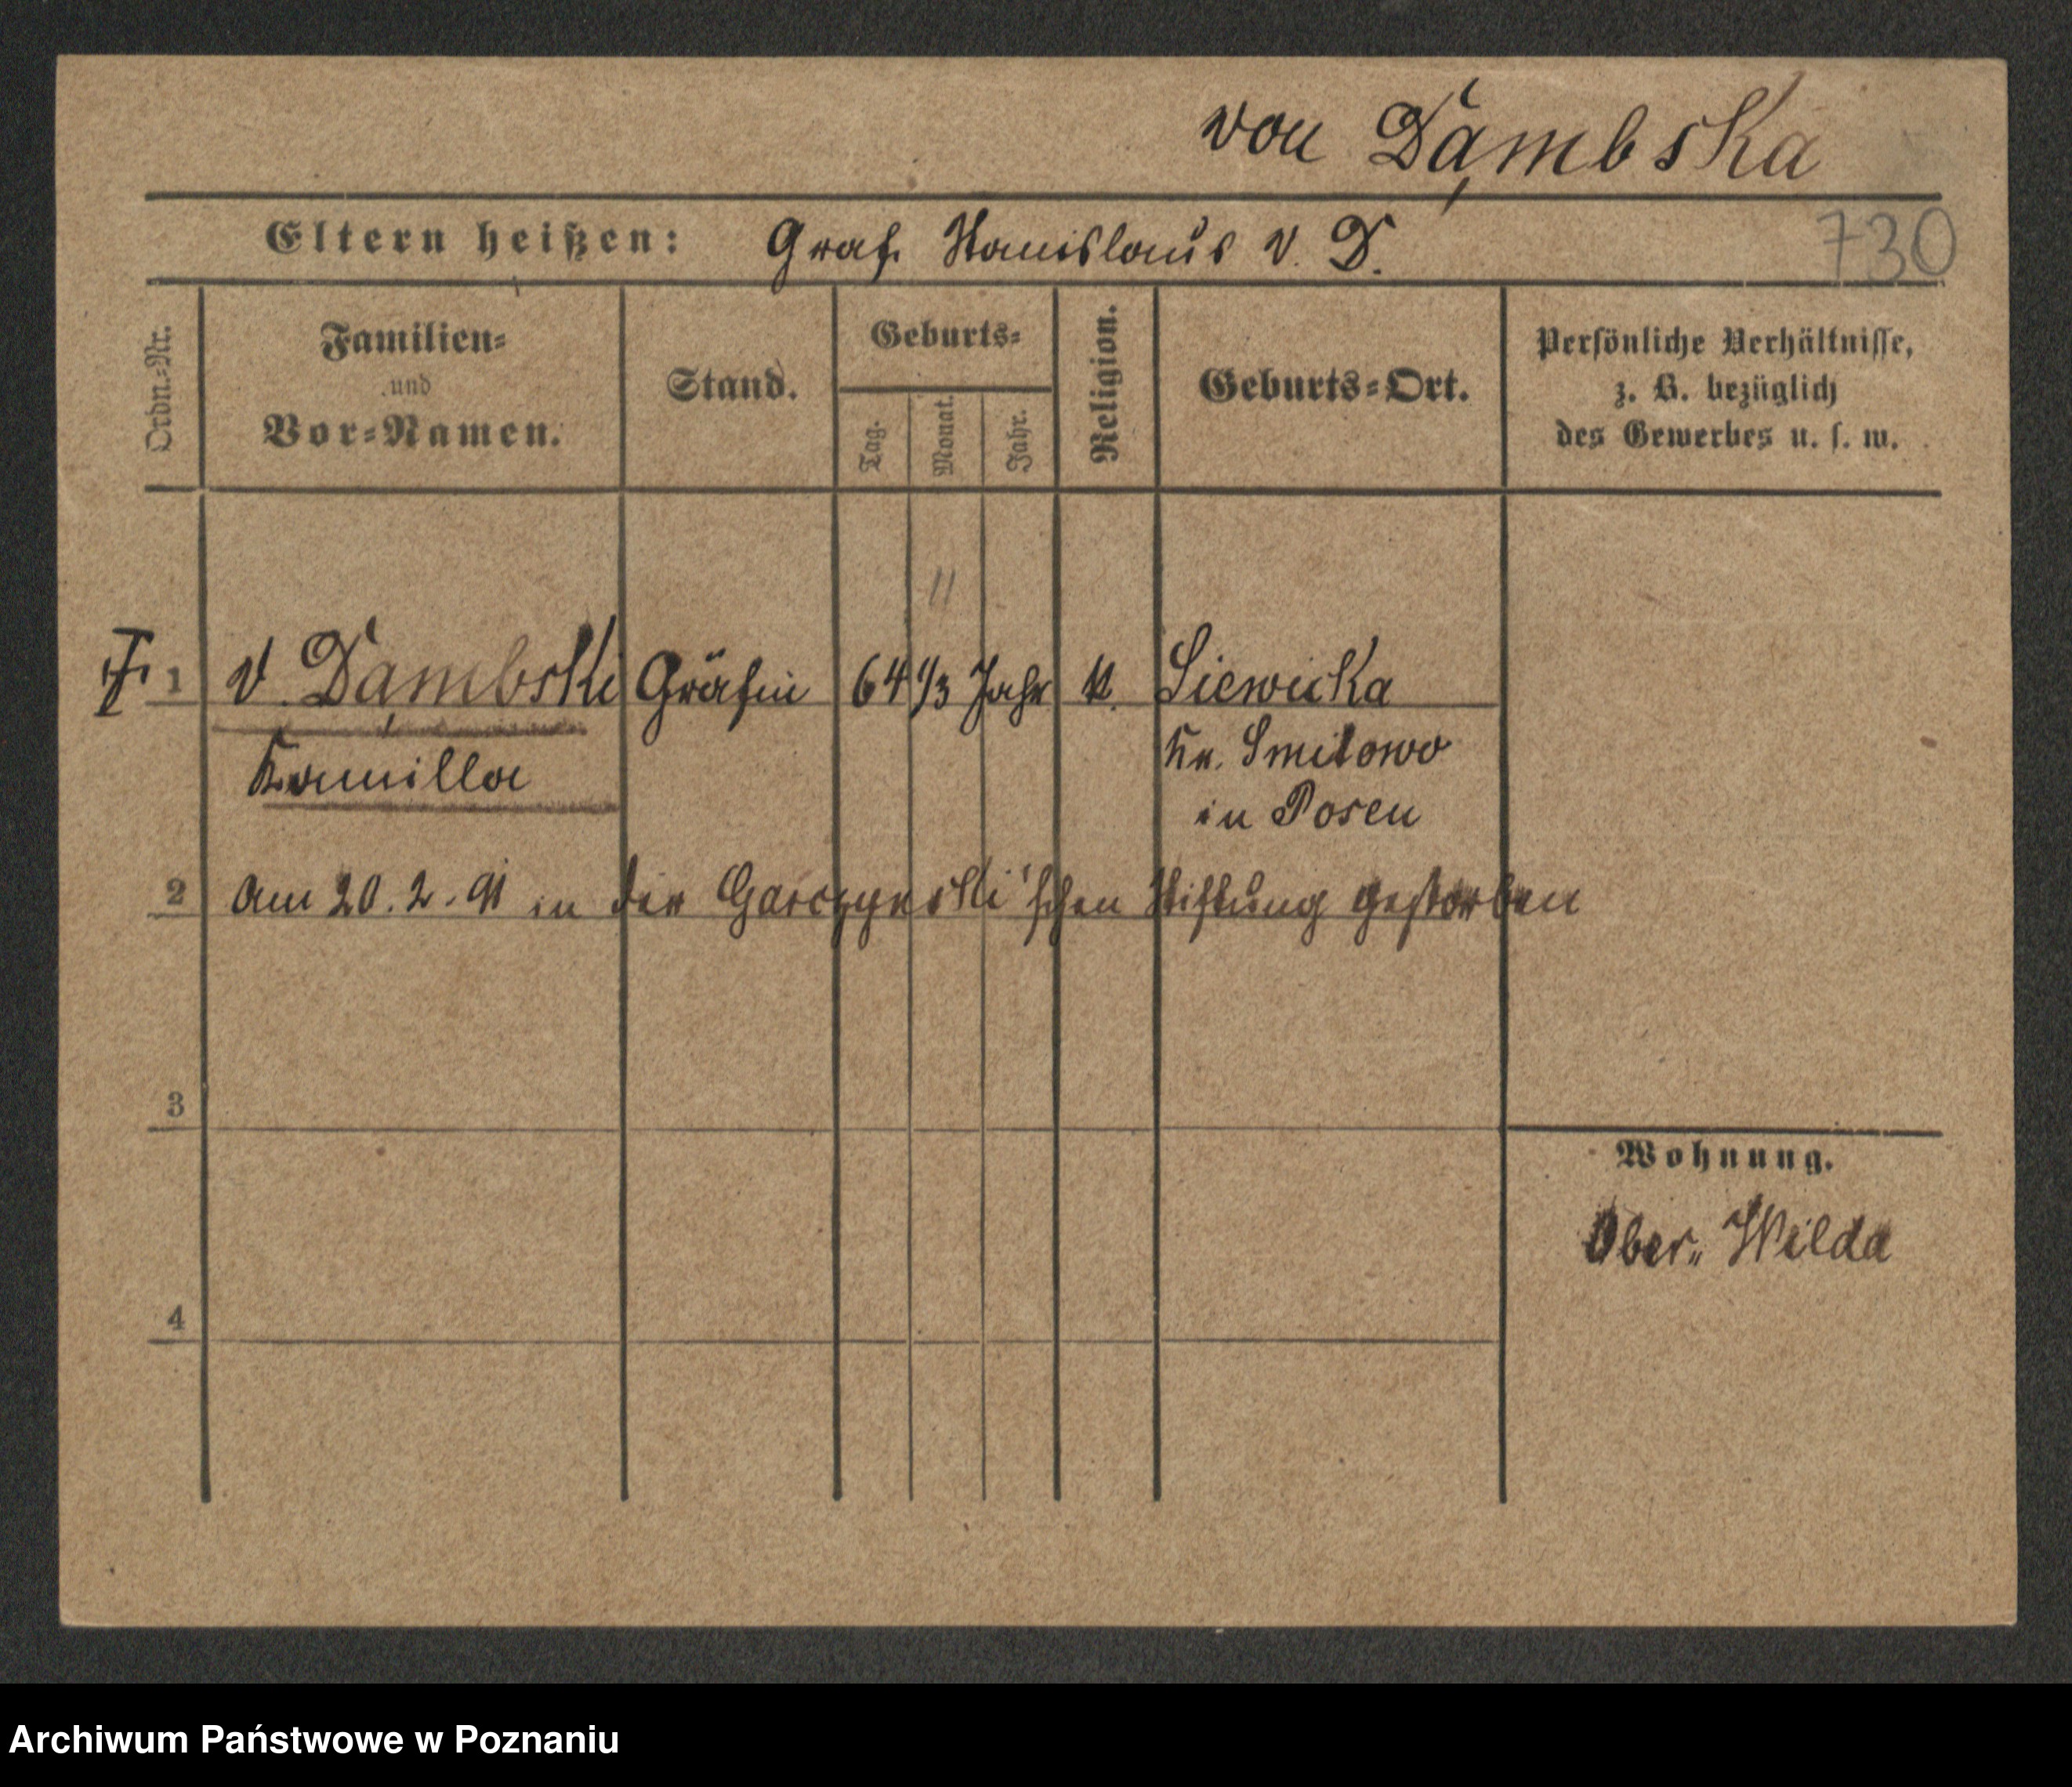 von Dąmbska
Eltern heißen: Graf Stanislaus v. D.
730
Ordn.-Nr.
Familien-
und
Vor-Namen.
Stand.
Geburts-
Tag.
Monat.
Jahr.
Religion.
Geburts-Ort.
Persönliche Verhältnisse,
z. B. bezüglich
des Gewerbes u. s. w.
11
1 v. Dąmbski Gräfin 64 1/3 Jahr k. Siewicka
Kamilla
Kr. Smilowo
in Posen
2 Am 20. 2. 91 in der Garczynski'schen Stiftung gestorben
3
Wohnung.
Ober-Wilda
4
Archiwum Państwowe w Poznaniu